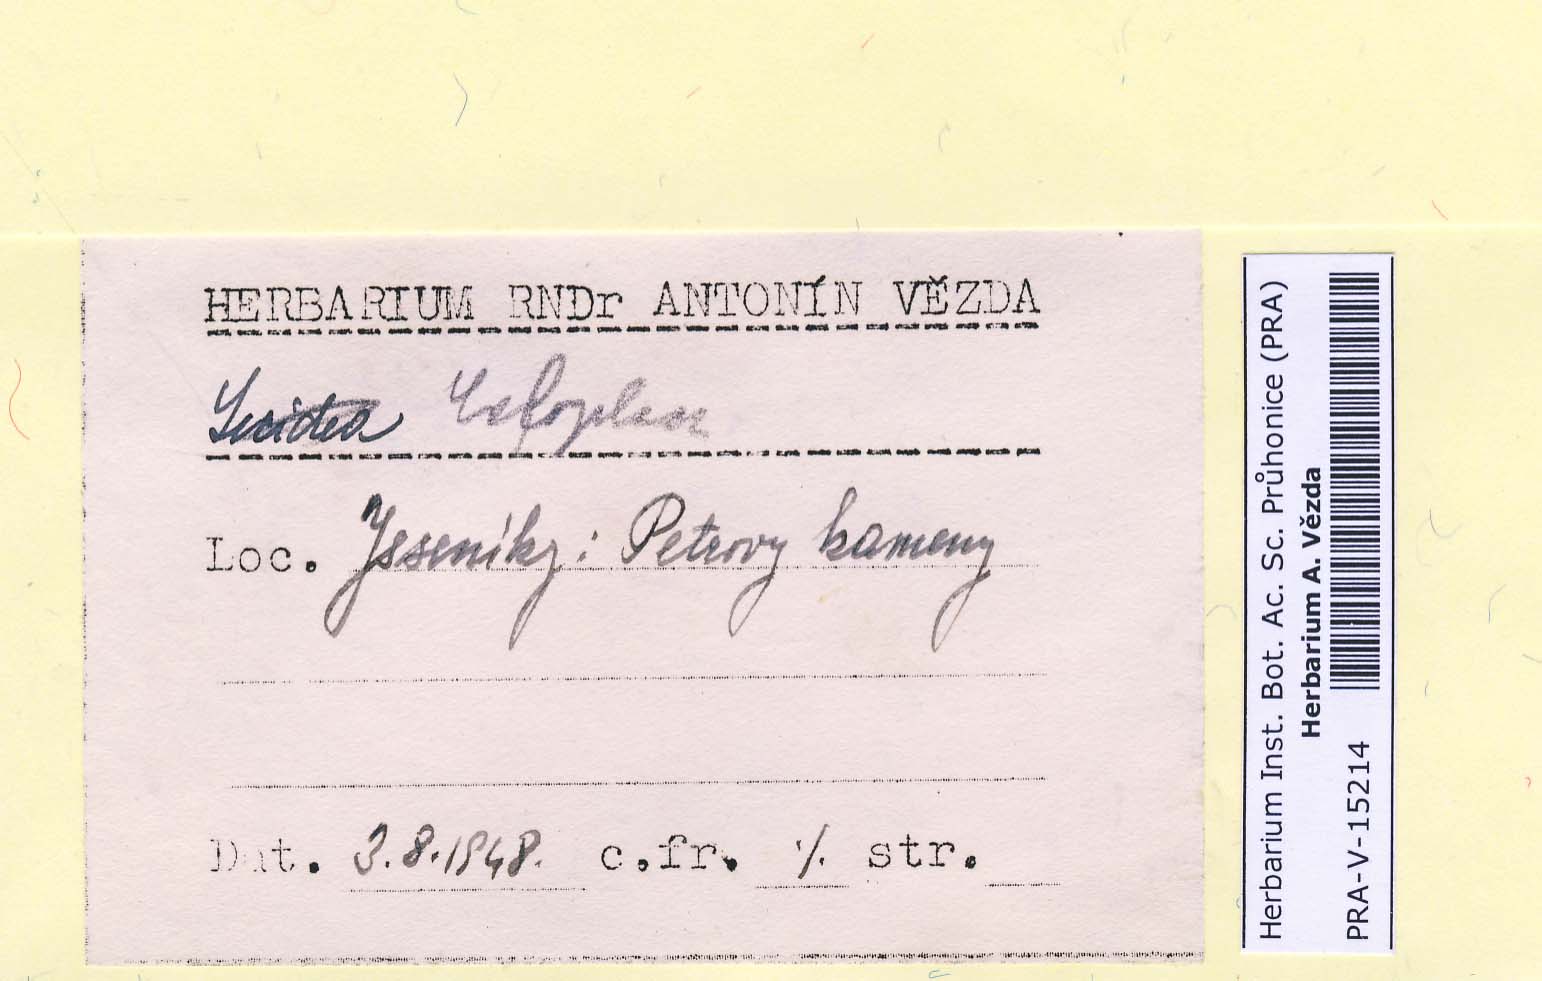 HERBARIUM RNDr ANTONÍN VĚZDA
Lecidea Caloplaca
Loc. Jeseníky: Petrovy kameny
Dat. 3.8.1948. c.fr. ·/. str.
Herbarium Inst. Bot. Ac. Sc. Průhonice (PRA)
Herbarium A. Vězda
PRA-V-15214